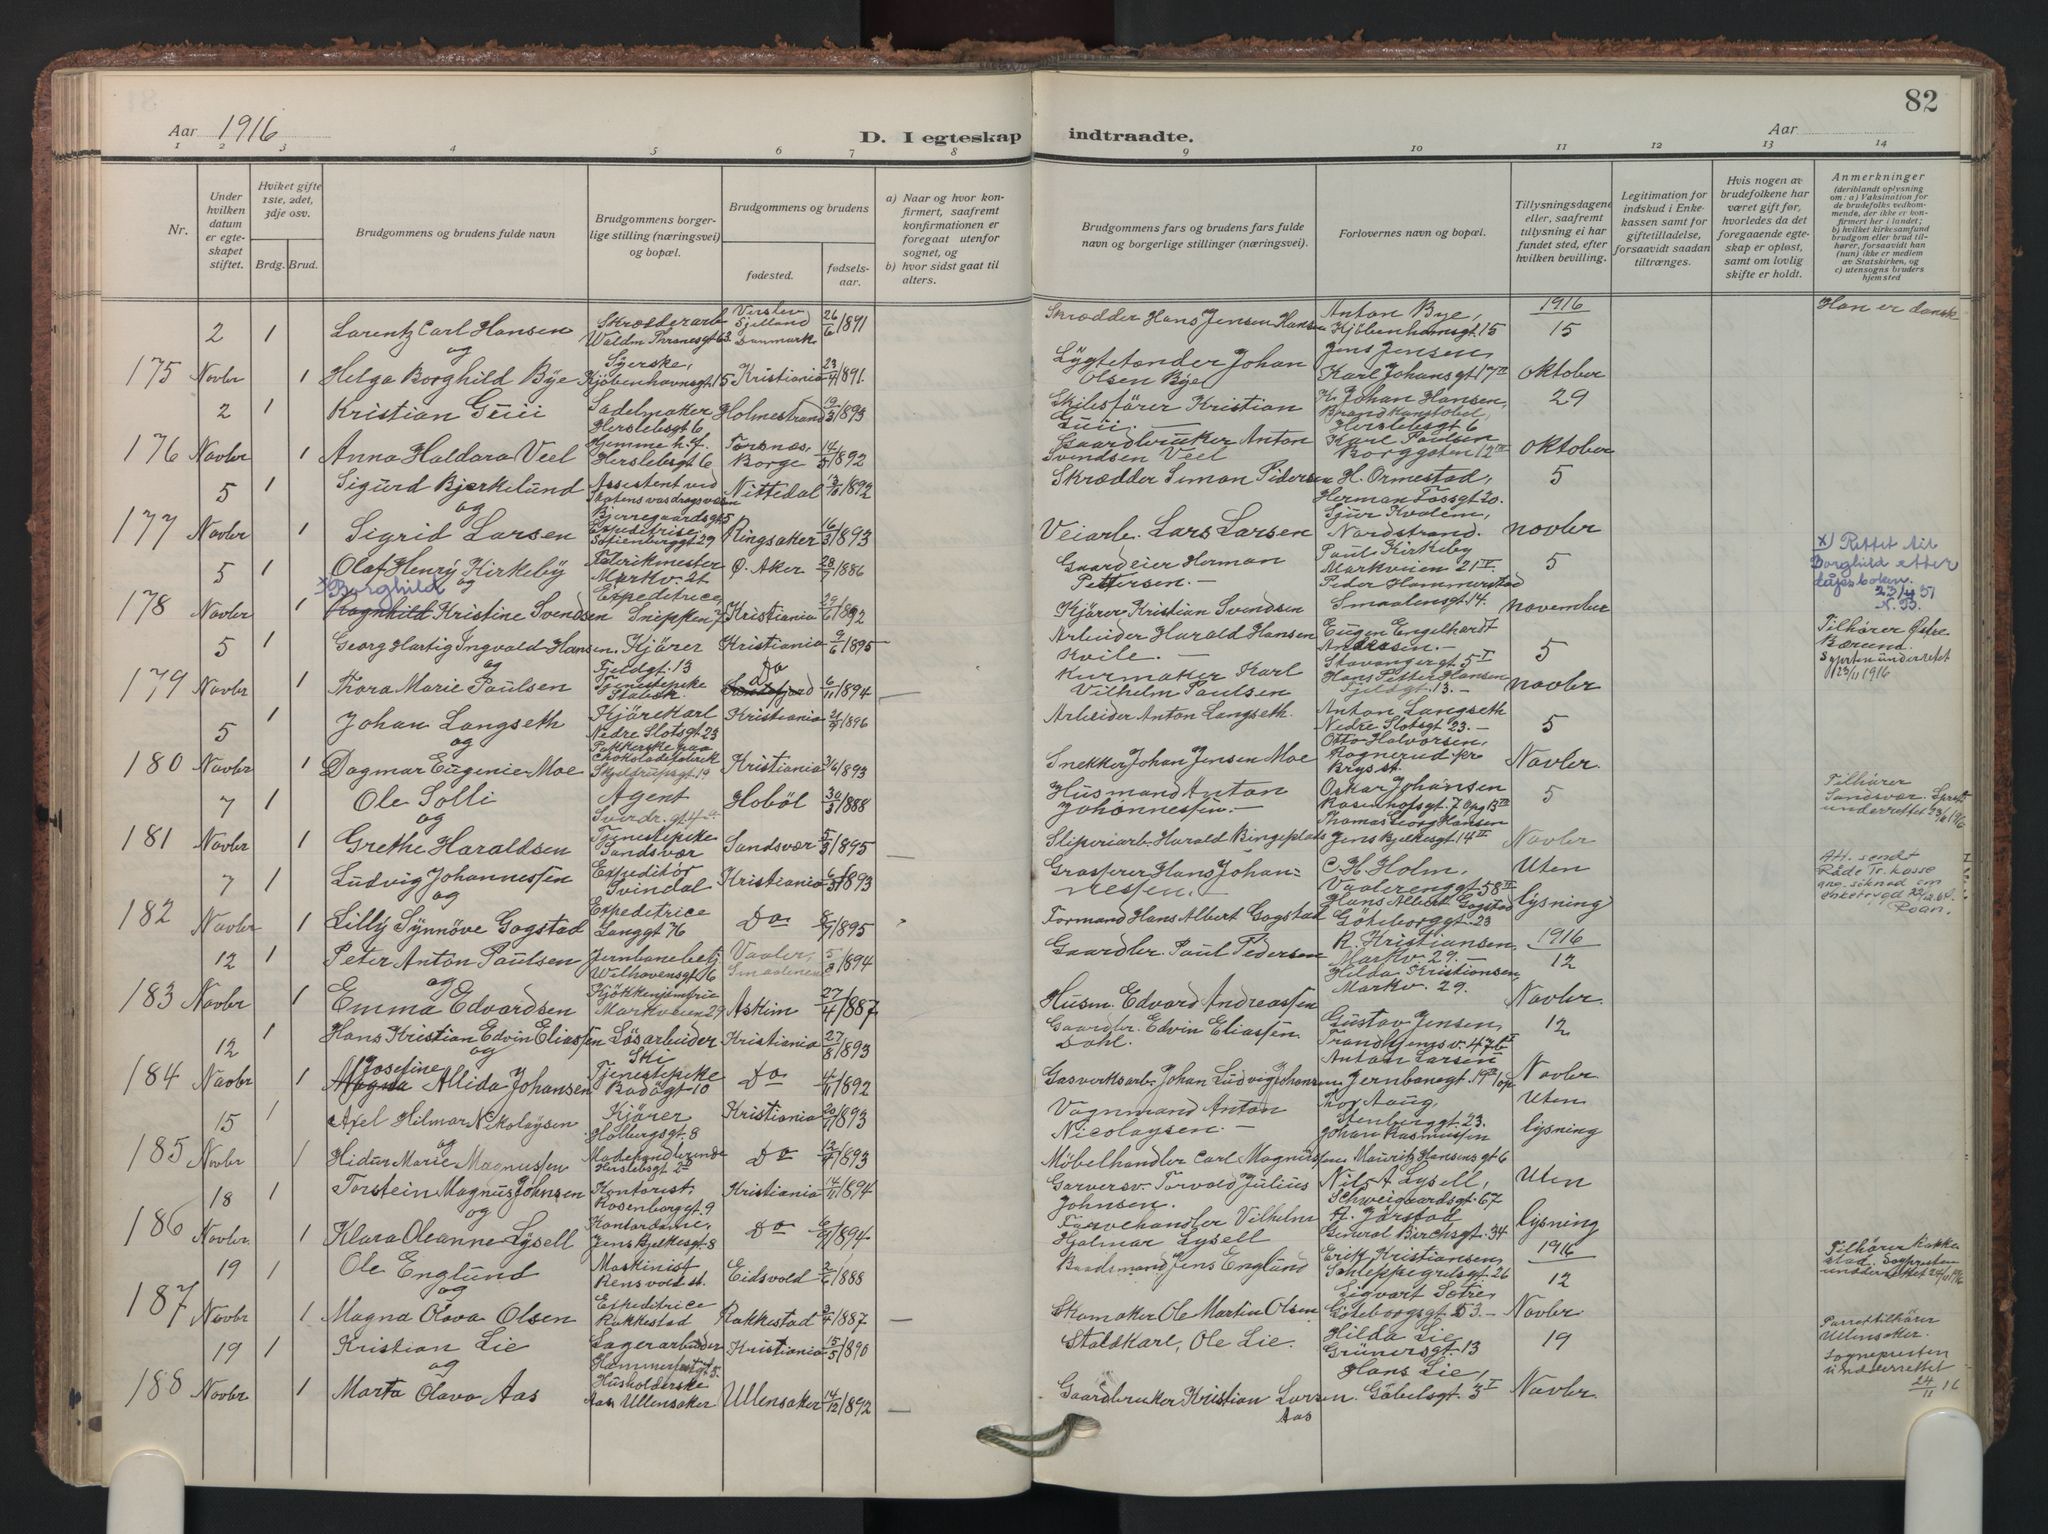 Aar 1916
D. I egteskap indtraadte.
Aar
82
1 2 3 4 5 6 7 8 9 10 11 12 13 14
Nr.
Under hvilken datum er egteskapet stiftet.
Hviket gifte 1ste, 2det, 3dje osv.
Brdg. Brud.
Brudgommens og brudens fulde navn
Brudgommens borgerlige stilling (næringsvei) og bopæl.
Brudgommens og brudens
fødested. fødselsaar.
a) Naar og hvor konfirmert, saafremt konfirmationen er foregaat utenfor sognet, og
b) hvor sidst gaat til alters.
Brudgommens fars og brudens fars fulde navn og borgerlige stillinger (næringsvei).
Forlovernes navn og bopæl.
Tillysningsdagene eller, saafremt tillysning ei har fundet sted, efter hvilken bevilling.
Legitimation for indskud i Enkekassen samt for giftetilladelse, forsaavidt saadan tiltrænges.
Hvis nogen av brudefolkene har været gift før, hvorledes da det foregaaende egteskap er opløst, samt om lovlig skifte er holdt.
Anmerkninger (deriblandt oplysning om: a) Vaksination for de brudefolks vedkommende, der ikke er konfirmert her i landet; b) hvilket kirkesamfund brudgom eller brud tilhører, forsaavidt han (hun) ikke er medlem av Statskirken, og c) utensogns bruders hjemsted
2 1 Larentz Carl Hansen Skrædderarb. Waldm Thranesgt 63 Verslev Sjelland Danmark 26/6 1891 Skrædder Hans Jensen Hansen Anton Bye, Kjøbenhavnsgt. 15 1916 15 Han er dansk
og
175 Novbr 1 Helga Borghild Bye Syerske, Kjøbenhavnsgt. 15 Kristiania 23/4 1891. Lygtetænder Johan Olsen Bye Jens Jensen, Karl Johansgt 17 II oktober
2 1 Kristian Guii Sadelmaker Herslebsgt 6 Holmestrand 19/3 1893 Skibsfører Kristian Guii. K. Johan Hansen, Herslebsgt 6 29
176 Novbr 1 Anna Haldora Veel Hjemme h. f. Herslebsgt 6 Torsnæs, Borge 14/5 1892 Gaardbruker Anton Svendsen Veel Karl Paulsen Borggaten 12 IV oktober
5 1 Sigurd Bjerkelund Assistent ved Statens vasdragsvæsen Bjerregaardsgt 5 Nittedal 13/10 1892 Skrædder Simon Pedersen H. Ormestad, Herman Fossgt 20. 5
og
177 Novbr 1 Sigrid Larsen Expeditrise Sofienberggt 29 Ringsaker 16/3 1893 Veiarb. Lars Larsen Sjur Kvalem, Nordstrand. novbr
5 1 Olaf Henry Kirkeby Fabrikmester Markv. 21 Ø. Aker 28/7 1886 Gaardeier Herman Pettersen. Paul Kirkeby Markveien 21 V. 5 x) Rettet til Borghild etter dåpsboken. 23/4 37 N. B.
og
x Borghild
178 Novbr 1 Ragnhild Kristine Svendsen Expeditrice Snippen 7 Kristiania 29/6 1892 Kjører Kristian Svendsen Peder Hammerstad Smaalensgt. 14. november
5 1 Georg Hartig Ingvald Hansen. Kjører Fjeldgt. 13 Kristiania 9/6 1895 Arbeider Harald Hansen Kvile. Eugen Engelhardt Andresen. Stavangergt 5 I 5 Tilhører Østre Bærum. Sprten underrettet 23/11 1916
og
179 Novbr 1 Thora Marie Paulsen Tjenestepike Stabæk Do Sandefjord 6/11 1894 — Kurmaker Karl Vilhelm Paulsen Hans Petter Hansen Fjeldgt. 13. novbr
5 1 Johan Langseth Kjørekarl Nedre Slotsgt 23 Kristiania 1896 Arbeider Anton Langseth. Anton Langseth Nedre Slotsgt 23. 5
og
180 Novbr 1 Dagmar Eugenie Moe Pakkerske paa Chokoladefabrik Skjeldrupsgt. 19 Kristiania 3/6 1893 Snekker Johan Jensen Moe Otto Halvorsen, Ragnerud pr Bryn st. Novbr.
7 1 Ole Solli Agent Sverdr. gt. 4 Hobøl 30/3 1888 Husmand Anton Johannessen. Oskar Johansen Rosenhofsgt. 7 Opg 13 III 5 Tilhører Sandsvær. Sprst. underrettet 23/11 1916
og
181 Novbr 1 Grethe Haraldsen Tjenestepike Sandsvær Sandsvær 5/3 1895 — Sliperiarb. Harald Bingeplads Thomas Georg Hansen Jens Bjelkesgt 14 II Novbr
7 1 Ludvig Johannessen Expeditør Svindal Kristiania 6/3 1893 Grosserer Hans Johannessen. C. H. Holm, Vaalerenggt 58 II Uten Att. sendt Råde Tr. kasse
og
182 Novbr 1 Lilly Synnøve Gogstad Expeditrice Langgt 76 Do 8/7 1895 Formand Hans Albert Gogstad Hans Albert Gogstad Gøteborggt. 23 lysning
12 1 Peter Anton Paulsen Jernbanebetj. Wilhovensgt 6 Vaaler, Smaalenene 5/3 1894 Gaardbr. Paul Pedersen R. Kristiansen, Markv 29. 1916 12
og
183 Novbr 1 Emma Edvardsen Kjøkkenjomfru Markveien 29 Askim 27/4 1887 Husm. Edvard Andreassen Hilda Kristiansen, Markv. 29. Novbr.
12 1 Hans Kristian Edvin Eliassen Løsarbeider Ski Kristiania 27/8 1893 Gaardbr. Edvin Eliassen Dahl. Gustav Jensen, Trondhjemsv. 47 b I 12
og
Josefine
184 Novbr 1 Magna Allida Johansen Tjenestepike Badøgt 10 Do 1892 Gasverksarb. Johan Ludvig Johansen Anton Larsen Jernbanegt. 19 Novbr
15 1 Axel Hilmar Nikolaysen Kjører Holbergsgt. 8 Kristiania 20/7 1893 Vognmand Anton Nicolaysen. Thor Aaug, Stenberggt. 23. Uten
og
185 Novbr 1 Hidur Marie Magnussen Modehandlerinde Herslebsgt 2 II Do 1893 Møbelhandler Carl Magnussen Johan Rasmussen Mauritz Hansens gt 6 lysning
18 1 Torstein Magnus Johnsen Kontorist, Rosenborggt. 9 Kristiania 14/11 1894 Garversv. Torvald Julius Johnsen. Nils A Lysell, Schweigaardsgt. 67 Uten
og
186 Novbr. 1 Klara Oleanne Lysell Kontordame, Jens Bjelkesgt. 8 Do 1894 Farvehandler Vilhelm Hjalmar Lysell A. Jørstad General Birchsgt. 34 lysning
19 1 Ole Englund Maskinist Rensvold st. Eidsvold 2/6 1888 Baadsmand Jens Englund Erik Kristiansen, Schleppegrelsgt. 26 1916 12 Tilhører Rakkestad. Sognpresten underrettet 24/11 1916
og
187 Novbr 1 Magna Olava Olsen Expeditrice Rakkestad Rakkestad 2/4 1887 — Skomaker Ole Martin Olsen Sigvart Sætre, Gøteborgsgt. 53. Novbr
19 1 Kristian Lie Lagerarbeider Hammerfestgt 5. Kristiania 15/5 1890 Staldkarl, Ole Lie Hilda Lie Grünersgt. 13 19 Parret tilhører Ullensaker. Sognepresten underrettet 24/11 16
og
188 Novbr 1 Marta Olava Aas Husholderske Aas Ullensaker Ullensaker 14/12 1892 — Gaardbruker Kristian Larsen Aas Hans Lie, Gøbelsgt. 3 I Novbr